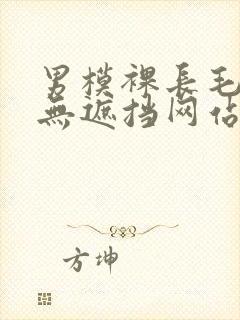 男模裸長毛
無遮挡网佔
方坤